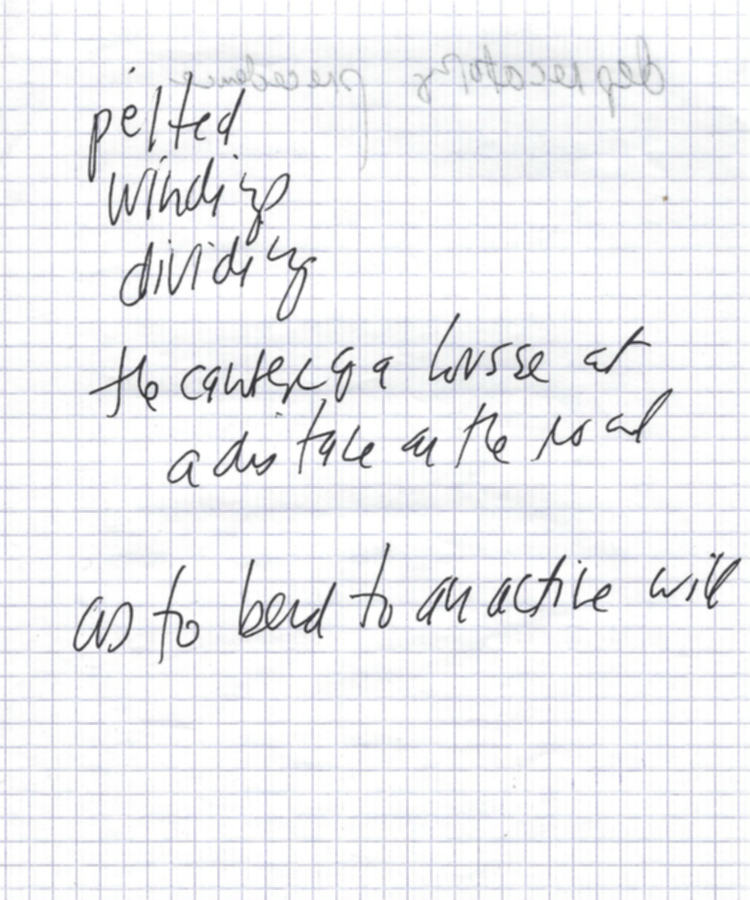 deprecatory precedence
pelted
winding
dividing
the canter of a horse at
a distance on the road
as to bend to an active will